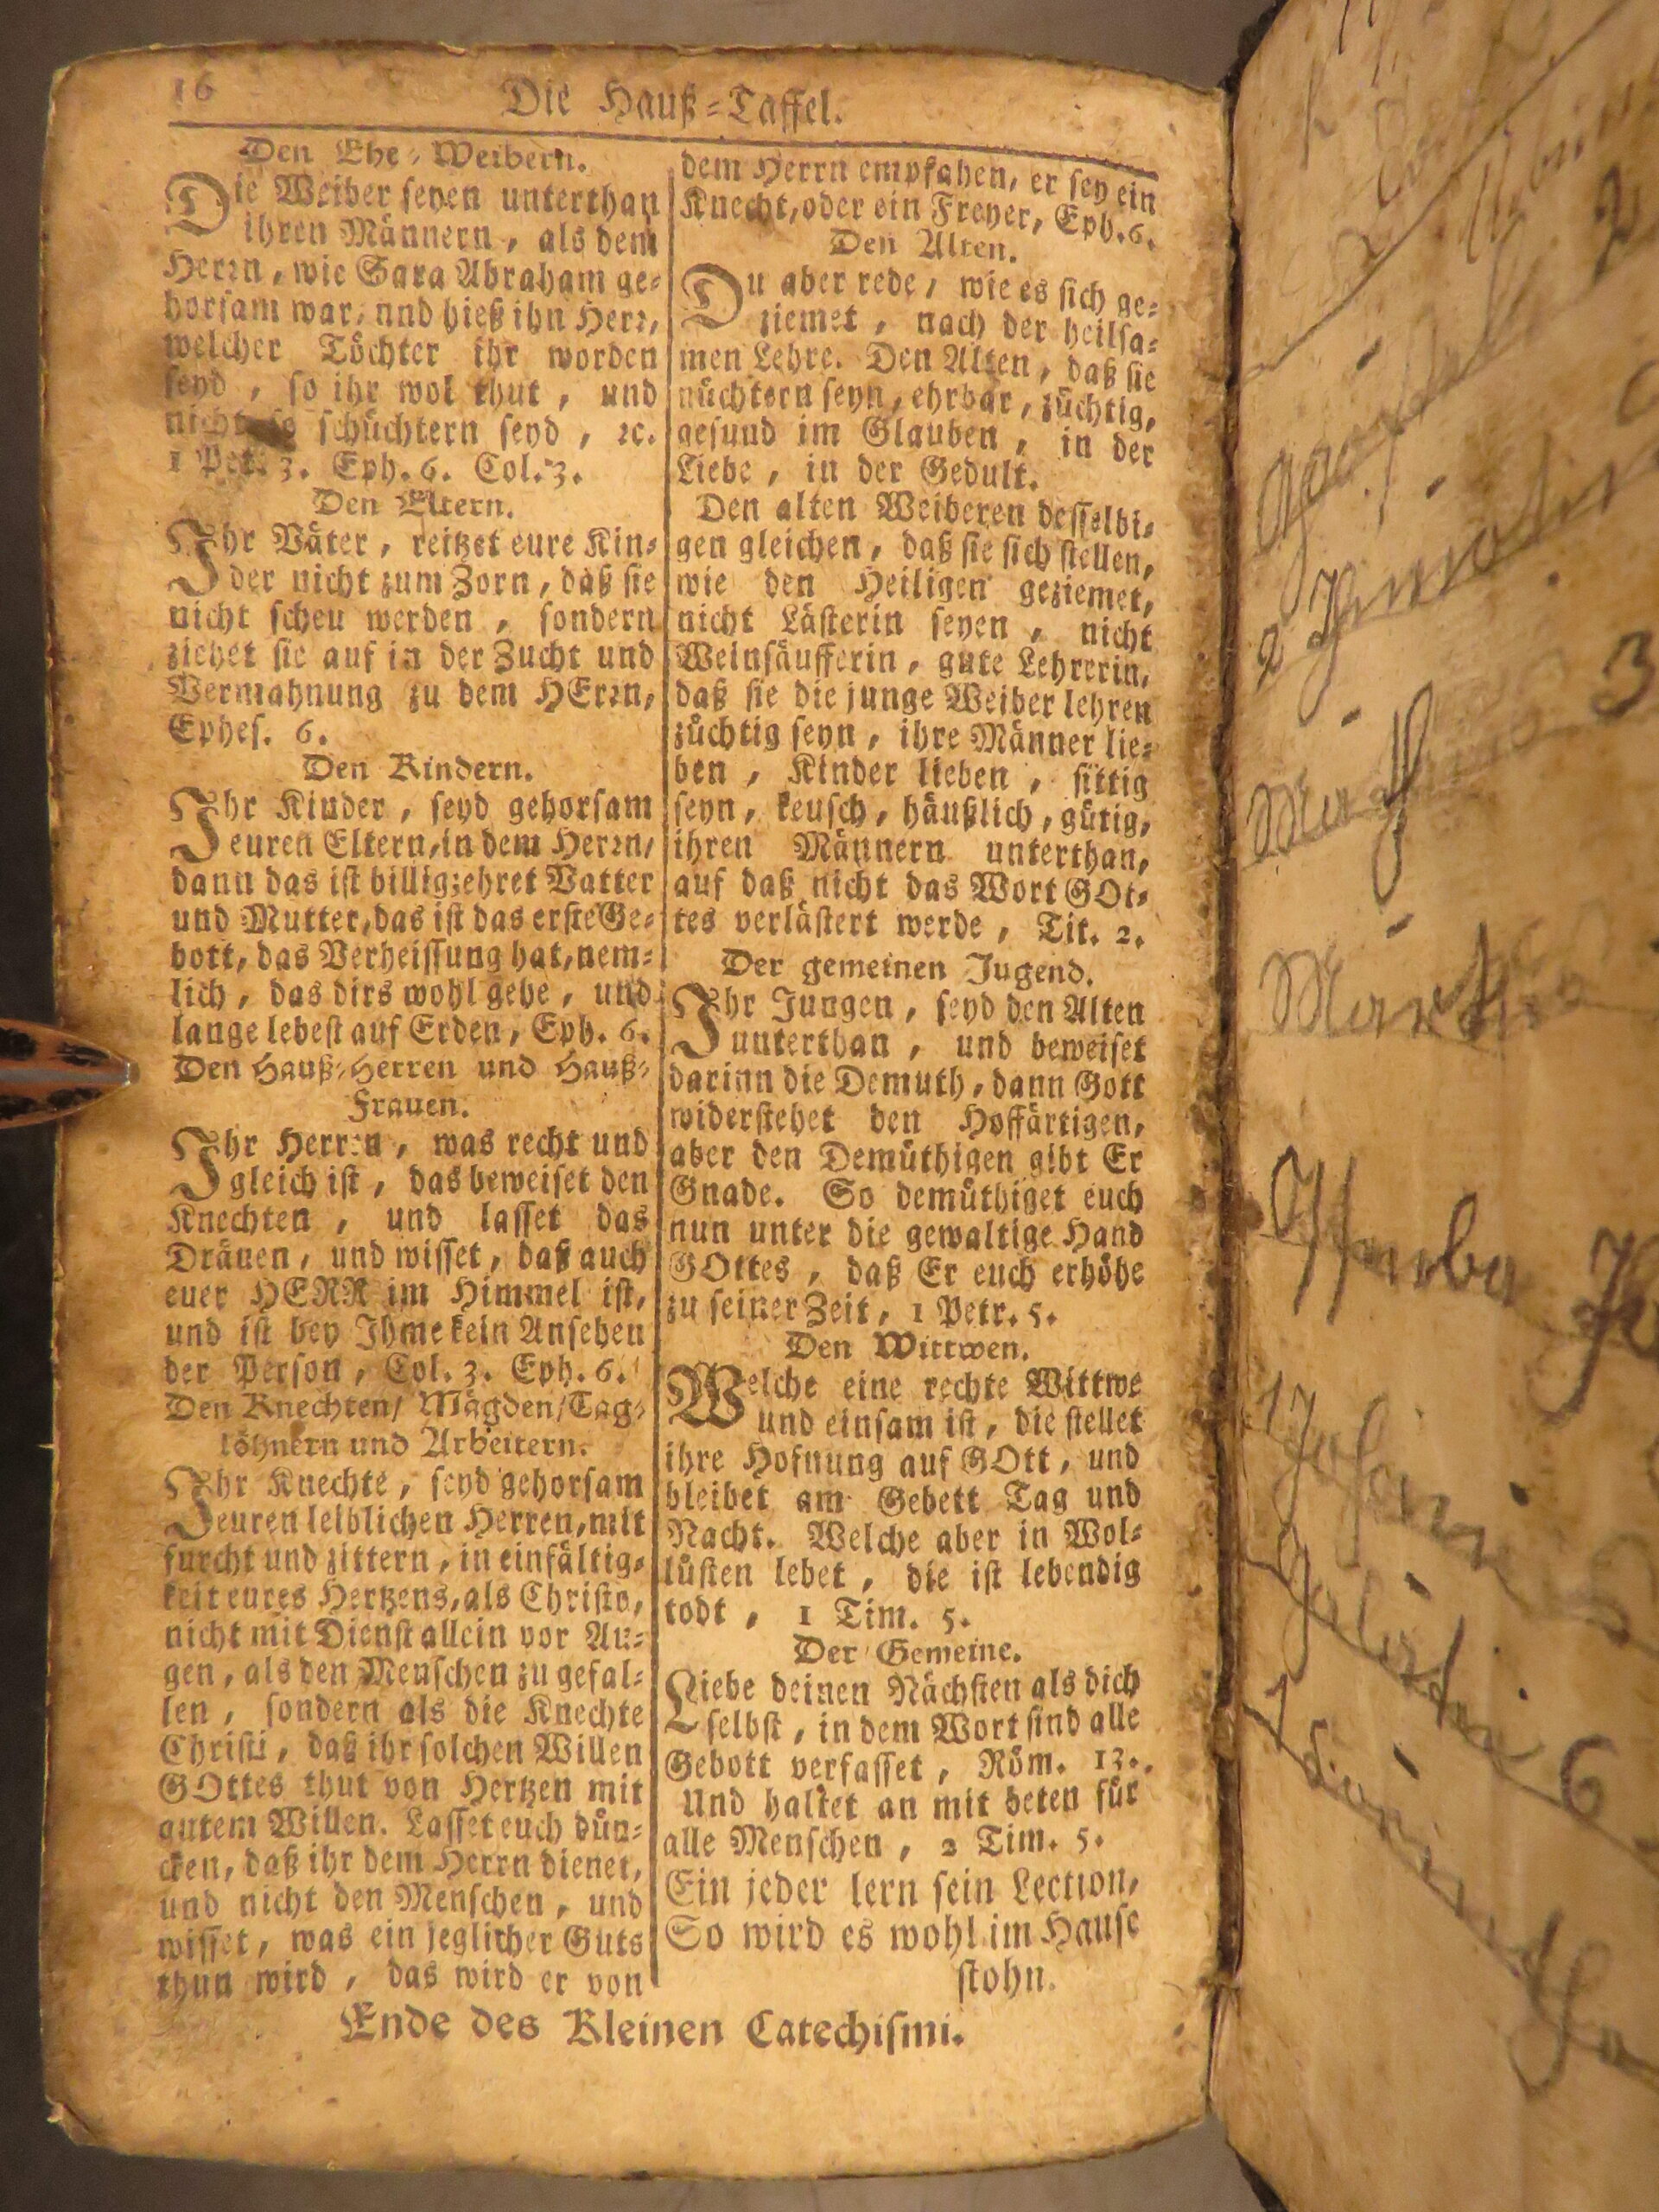 16
Die Hauß-Taffel.
Den Ehe-Weibern.
Die Weiber seyen unterthan
ihren Männern, als dem
Herrn, wie Sara Abraham ge-
horsam war, und hieß ihn Herr,
welcher Töchter ihr worden
seyd, so ihr wol thut, und
nicht so schüchtern seyd, ꝛc.
1 Pet. 3. Eph. 6. Col. 3.
Den Eltern.
Ihr Väter, reitzet eure Kin-
der nicht zum Zorn, daß sie
nicht scheu werden, sondern
ziehet sie auf in der Zucht und
Vermahnung zu dem HErrn,
Ephes. 6.
Den Kindern.
Ihr Kinder, seyd gehorsam
euren Eltern, in dem Herrn,
dann das ist billig; ehret Vatter
und Mutter, das ist das erste Ge-
bott, das Verheissung hat, nem-
lich, das dirs wohl gehe, und
lange lebest auf Erden, Eph. 6.
Den Hauß-Herren und Hauß-
Frauen.
Ihr Herren, was recht und
gleich ist, das beweiset den
Knechten, und lasset das
Dräuen, und wisset, daß auch
euer HERR im Himmel ist,
und ist bey Ihme kein Ansehen
der Person, Col. 3. Eph. 6.
Den Knechten/ Mägden/Tag-
löhnern und Arbeitern.
Ihr Knechte, seyd gehorsam
euren leiblichen Herren, mit
furcht und zittern, in einfältig-
keit eures Hertzens, als Christo,
nicht mit Dienst allein vor Au-
gen, als den Menschen zu gefal-
len, sondern als die Knechte
Christi, daß ihr solchen Willen
GOttes thut von Hertzen mit
gutem Willen. Lasset euch dün-
cken, daß ihr dem Herrn dienet,
und nicht den Menschen, und
wisset, was ein jeglicher Guts
thun wird, das wird er von
dem Herrn empfahen, er sey ein
Knecht, oder ein Freyer, Eph. 6.
Den Alten.
Du aber rede, wie es sich ge-
ziemet, nach der heilsa-
men Lehre. Den Alten, daß sie
nüchtern seyn, ehrbar, züchtig,
gesund im Glauben, in der
Liebe, in der Gedult.
Den alten Weiberen desselbi-
gen gleichen, daß sie sich stellen,
wie den Heiligen geziemet,
nicht Lästerin seyen, nicht
Weinsäufferin, gute Lehrerin,
daß sie die junge Weiber lehren
züchtig seyn, ihre Männer lie-
ben, Kinder lieben, sittig
seyn, keusch, häußlich, gütig,
ihren Männern unterthan,
auf daß nicht das Wort GOt-
tes verlästert werde, Tit. 2.
Der gemeinen Jugend.
Ihr Jungen, seyd den Alten
unterthan, und beweiset
darinn die Demuth, dann Gott
widerstehet den Hoffärtigen,
aber den Demüthigen gibt Er
Gnade. So demüthiget euch
nun unter die gewaltige Hand
GOttes, daß Er euch erhöhe
zu seiner Zeit, 1 Petr. 5.
Den Wittwen.
Welche eine rechte Wittwe
und einsam ist, die stellet
ihre Hofnung auf GOtt, und
bleibet am Gebett Tag und
Nacht. Welche aber in Wol-
lüsten lebet, die ist lebendig
todt, 1 Tim. 5.
Der Gemeine.
Liebe deinen Nächsten als dich
selbst, in dem Wort sind alle
Gebott verfasset, Röm. 13.
Und haltet an mit beten für
alle Menschen, 2 Tim. 5.
Ein jeder lern sein Lection,
So wird es wohl im Hause
stohn.
Ende des Kleinen Catechismi.
2
3
6